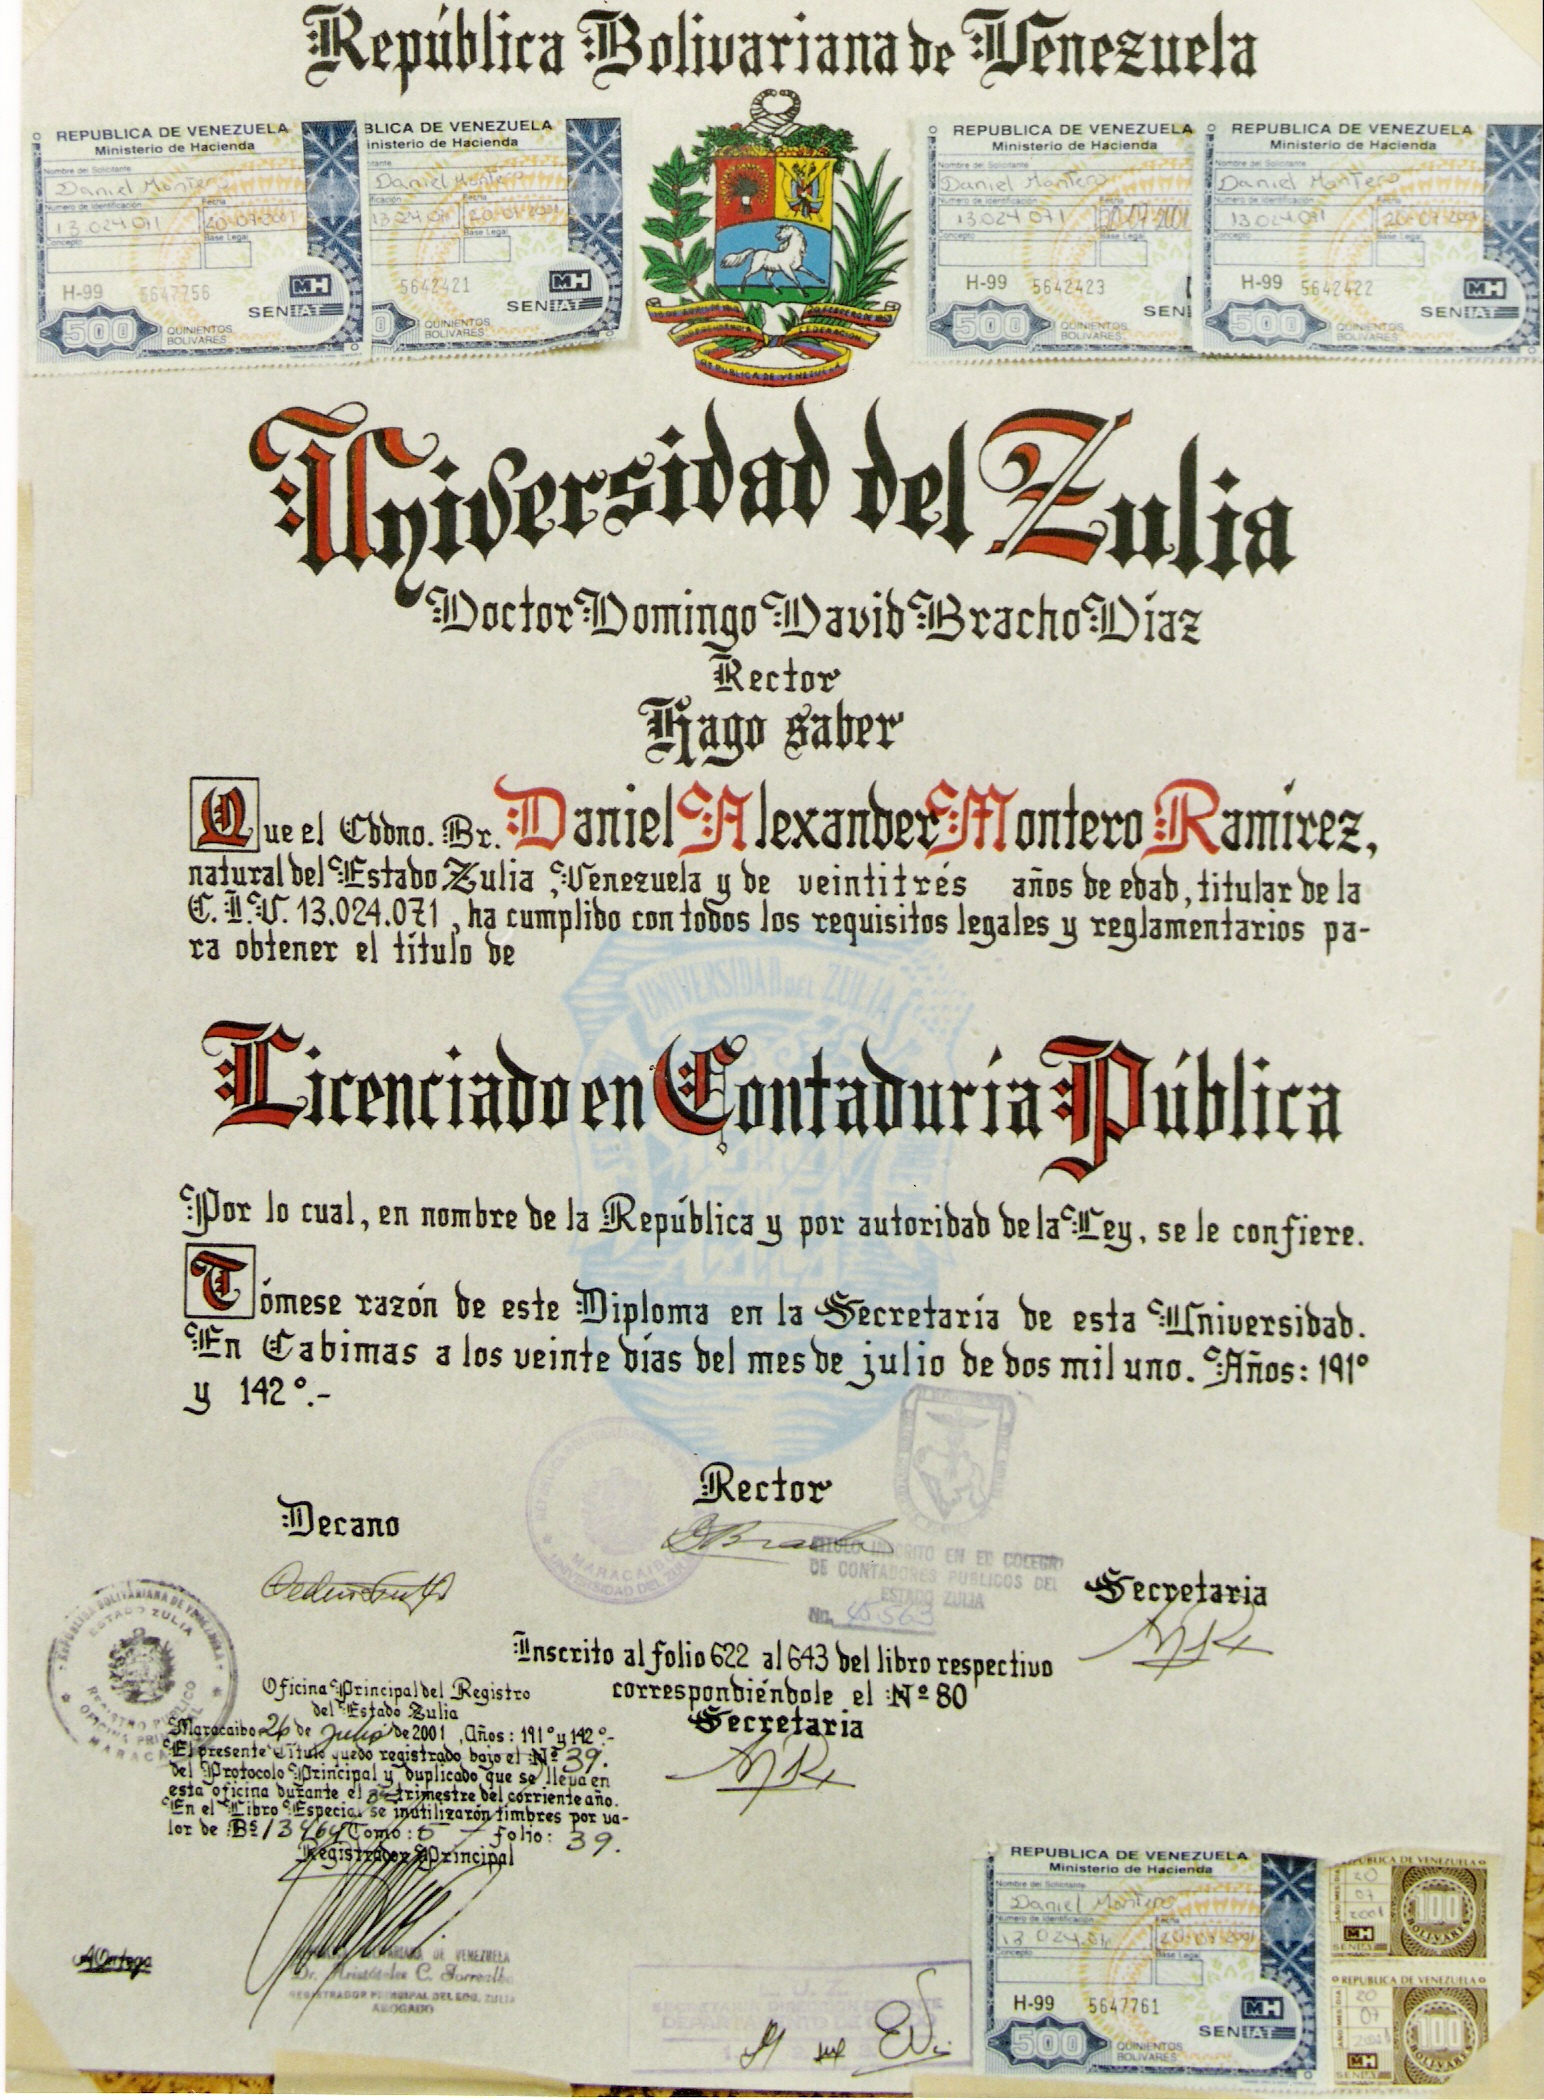 República Bolivariana de Venezuela
REPUBLICA DE VENEZUELA
Ministerio de Hacienda
Nombre del Solicitante
Daniel Montero
Numero de Identificación Fecha
13.024 071 20-07-2001
Concepto Base Legal
H-99 5647756
MH
SENIAT
500 QUINIENTOS
BOLIVARES
BLICA DE VENEZUELA
inisterio de Hacienda
Daniel Montero
13 024 071 20-07-2001
Base Legal
5642421
MH
SENIAT
QUINIENTOS
BOLIVARES
REPUBLICA DE VENEZUELA
Ministerio de Hacienda
Nombre del Solicitante
Daniel Montero
Numero de Identificación Fecha
13.024 071 20-07-2001
Concepto Base Legal
H-99 5642423
SENI
500 QUINIENTOS
BOLIVARES
REPUBLICA DE VENEZUELA
Ministerio de Hacienda
Nombre del Solicitante
Daniel Montero
Numero de Identificación Fecha
13.024 071 20-07-2001
Concepto Base Legal
H-99 5642422
MH
SENIAT
500 QUINIENTOS
BOLIVARES
REPUBLICA DE VENEZUELA
Universidad del Zulia
Doctor Domingo David Bracho Díaz
Rector
Hago saber
Que el Cddno. Br. Daniel Alexander Montero Ramírez,
natural del Estado Zulia, Venezuela y de veintitrés años de edad, titular de la
C.I.V. 13.024.071, ha cumplido con todos los requisitos legales y reglamentarios pa-
ra obtener el título de
UNIVERSIDAD DEL ZULIA
Licenciado en Contaduría Pública
Por lo cual, en nombre de la República y por autoridad de la Ley, se le confiere.
Tómese razón de este Diploma en la Secretaría de esta Universidad.
En Cabimas a los veinte días del mes de julio de dos mil uno. Años: 191°
y 142°.-
Rector
Decano
MARACAIBO
UNIVERSIDAD DEL ZULIA
TITULO INSCRITO EN EL COLEGIO
DE CONTADORES PUBLICOS DEL
ESTADO ZULIA
No. 45563
Secretaria
Inscrito al folio 622 al 643 del libro respectivo
correspondiéndole el Nº 80
Secretaria
REPUBLICA BOLIVARIANA DE VENEZUELA
ESTADO ZULIA
REGISTRO PUBLICO
OFICINA PRINCIPAL
MARACAIBO
Oficina Principal del Registro
del Estado Zulia
Maracaibo 26 de Julio de 2001, Años: 191° y 142°.-
El presente Título quedo registrado bajo el Nº 39.
del Protocolo Principal y duplicado que se lleva en
esta oficina durante el 3er trimestre del corriente año.
En el Libro Especial se inutilizarón timbres por va-
lor de Bs 13464 Tomo: 5 - folio: 39.
Registrador Principal
DE VENEZUELA
Dr. Aristóteles C. Torrealba
REGISTRADOR PRINCIPAL DEL EDO. ZULIA
ABOGADO
AOrtega
REPUBLICA DE VENEZUELA
Ministerio de Hacienda
Nombre del Solicitante
Daniel Montero
Numero de Identificación Fecha
20-07-2001
Concepto Base Legal
H-99 5647761
MH
SENIAT
500 QUINIENTOS
BOLIVARES
REPUBLICA DE VENEZUELA
20
07
2001
AÑO MES DIA
100
BOLIVARES
MH
SENIAT
REPUBLICA DE VENEZUELA
20
07
2001
AÑO MES DIA
100
BOLIVARES
MH
SENIAT